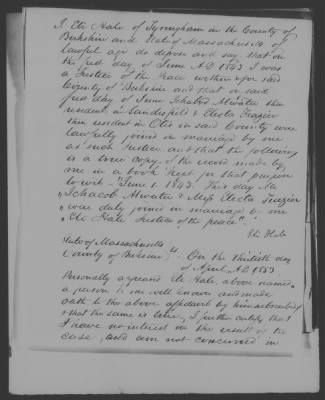 I, Eli Hale of Tyringham in the County of
Berkshire and State of Massachusetts of
lawful age do depose and say that on
the first day of June A.D 1843 I was
a Justice of the Peace within & for said
County of Berkshire and that on said
first day of June Ichabod Atwater then
resident in Sandisfield & Electa Frazier
then resident in Otis in said County were
lawfully joined in marriage by me
as such Justice and that the following
is a true copy of the record made by
me in a book kept for that purpose
to wit - "June 1. 1843. This day Mr
"Ichabod Atwater & Miss Electa Frazier
"were duly joined in marriage by me
"Eli Hale Justice of the peace".
Eli Hale
State of Massachusetts
County of Berkshire } On the thirtieth day
of April A.D 1853
Personally appeared Eli Hale, above named,
a person to me well known and made
oath to the above affidavit by him subscribed
& that the same is true, I further certify that
I have no interest in the result of the
case, and am not concerned in